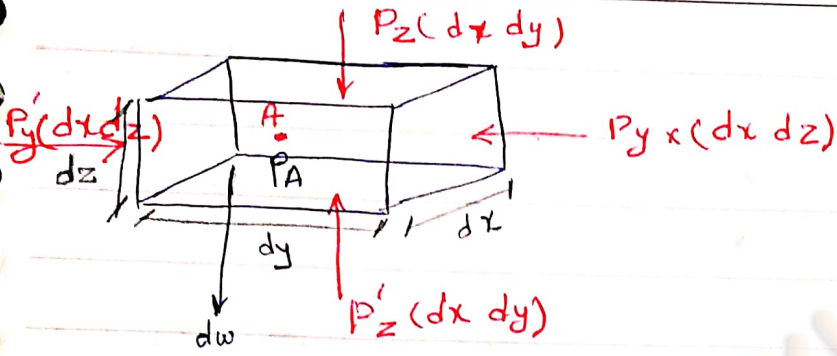 Pz(dx dy)
P'y(dxdz)
A
Py x (dx dz)
dz
PA
dx
dy
P'z (dx dy)
dw